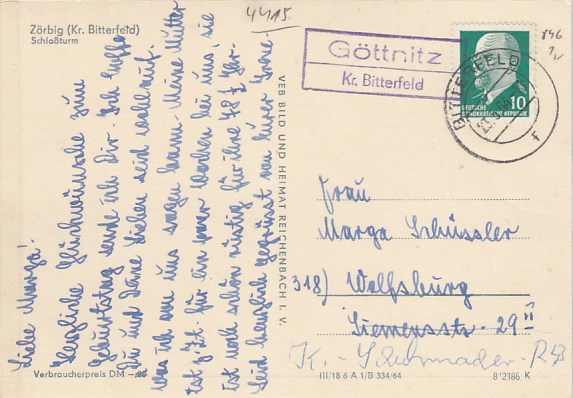 Zörbig (Kr. Bitterfeld)
Schloßturm
4415.
Liebe Marga!
Herzliche Glückwünsche zum
Geburtstag sende ich Dir. Ich hoffe
Du und Deine Lieben seid wohlauf.
Was ich von uns sagen kann. Meine Mutter
ist z. Zt. für ein paar Wochen bei uns, sie
ist noch schön rüstig für ihre 78 J.
Seid herzlich gegrüsst von
Verbraucherpreis DM
VEB BILD UND HEIMAT REICHENBACH I. V.
III/18 6 A 1/B 334/64
8/2386 K
Göttnitz
Kr. Bitterfeld
BITTERFELD
f
10
DEUTSCHE
DEMOKRATISCHE REPUBLIK
Frau
Marga Schüssler
318) Wolfsburg
Siemensstr. 29 II